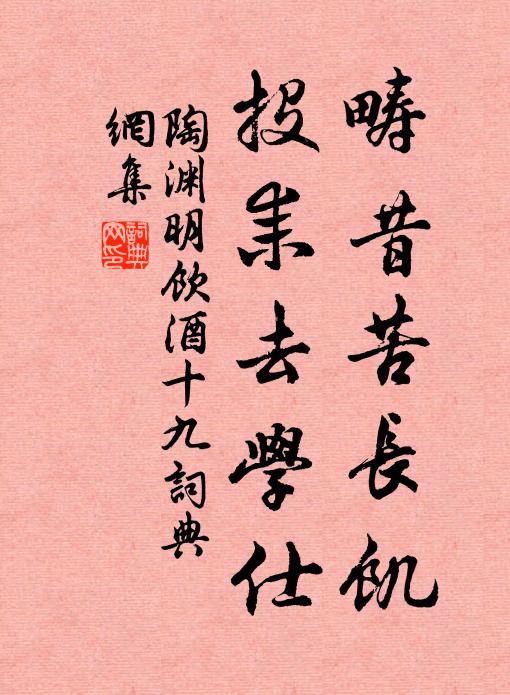 疇昔苦長飢
投耒去學仕
陶渊明飲酒十九詞典
網集
詞典网印